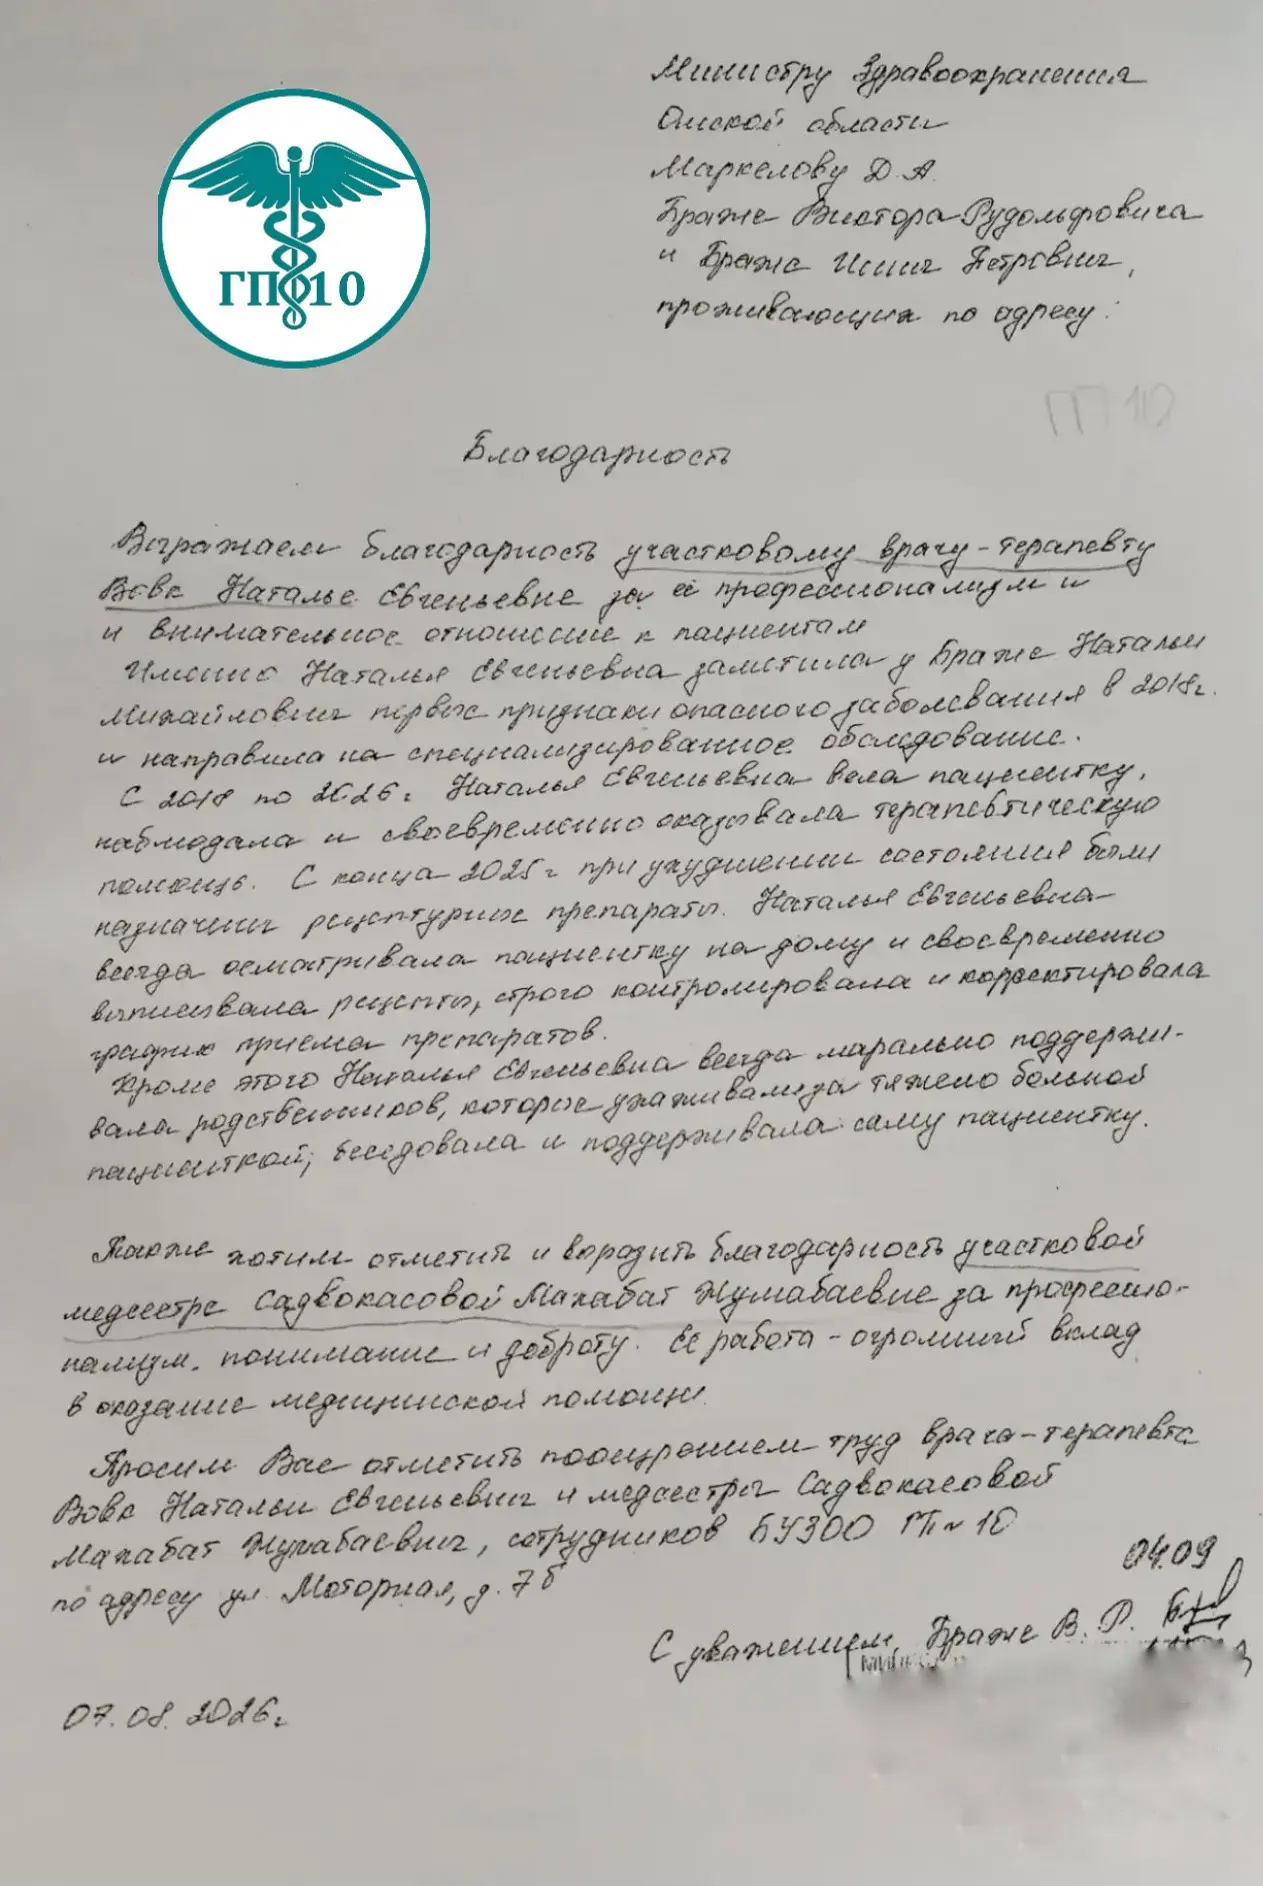 Министру Здравоохранения
Омской области
Маркелову Д. А.
Браже Виктора Рудольфовича
и Браже Инны Петровны,
проживающих по адресу:
ГП 10
ГП 10
Благодарность
Выражаем благодарность участковому врачу-терапевту
Вовк Наталье Евгеньевне за её профессионализм и
и внимательное отношение к пациентам
Именно Наталья Евгеньевна заметила у Браже Натальи
Михайловны первые признаки опасного заболевания в 2018г.
и направила на специализированное обследование.
С 2018 по 2026г Наталья Евгеньевна вела пациентку,
наблюдала и своевременно оказывала терапевтическую
помощь. С конца 2025г при ухудшении состояния были
назначены рецептурные препараты. Наталья Евгеньевна
всегда осматривала пациентку на дому и своевременно
выписывала рецепты, строго контролировала и корректировала
график приема препаратов.
Кроме этого Наталья Евгеньевна всегда марально поддержи-
вала родственников, которые ухаживали за тяжело больной
пациенткой, беседовала и поддерживала саму пациентку.
Также хотим отметить и выразить благодарность участковой
медсестре Садвокасовой Махабат Жумабаевне за профессио-
нализм, понимание и доброту. Ее работа - огромный вклад
в оказание медицинской помощи.
Просим Вас отметить поощрением труд врача-терапевта
Вовк Натальи Евгеньевны и медсестры Садвокасовой
Махабат Жумабаевны, сотрудников БУЗОО ГП № 10
по адресу ул. Моторная, д. 7б
04.09
С уважением, Браже В. Р.
07.08.2026г.